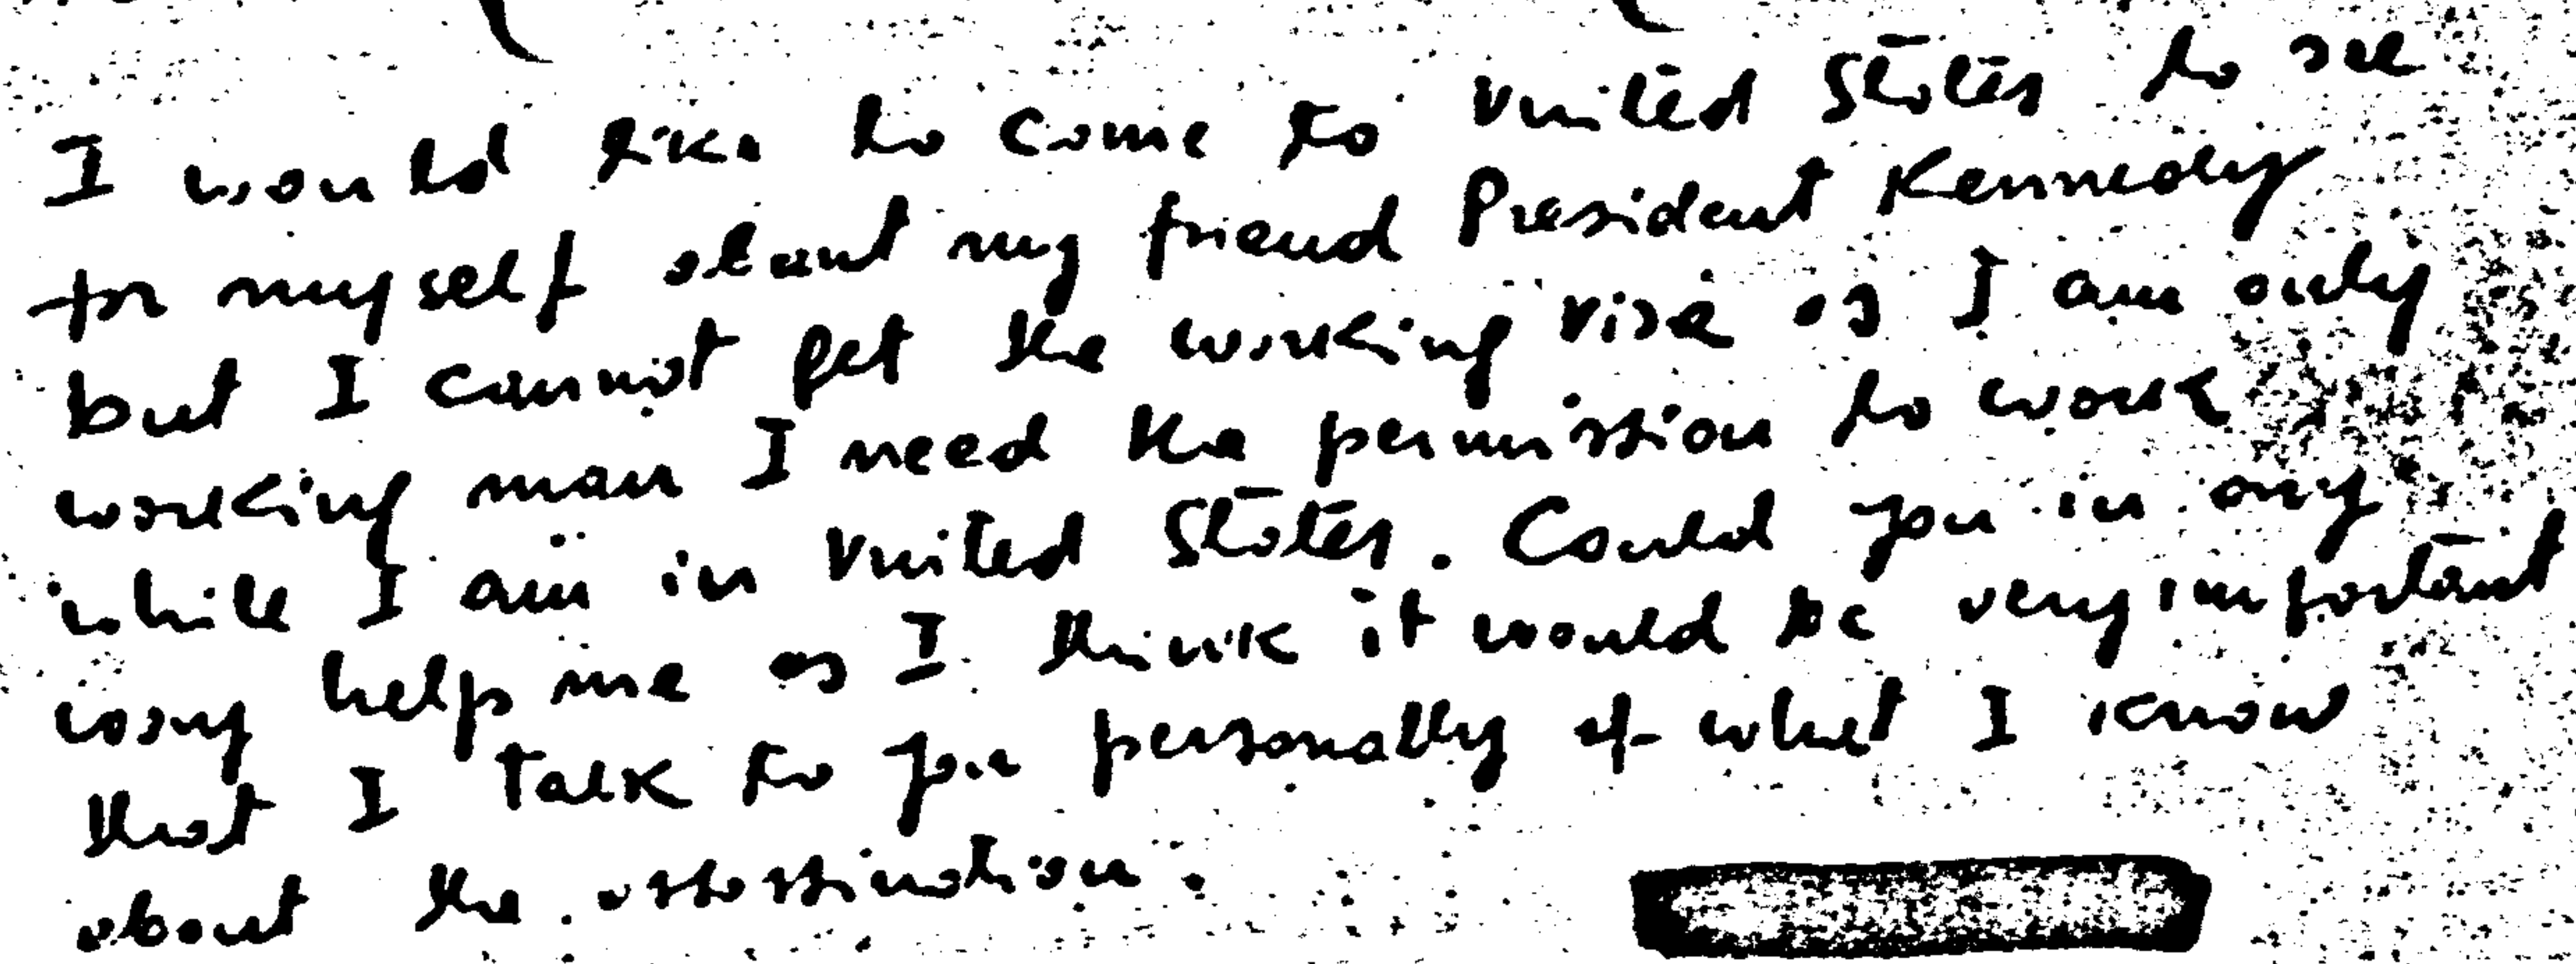 I would like to come to United States to see
for myself about my friend President Kennedy
but I cannot get the working visa as I am only
working man I need the permission to work
while I am in United States. Could you in any
way help me as I think it would be very important
that I talk to you personally of what I know
about the assassination.